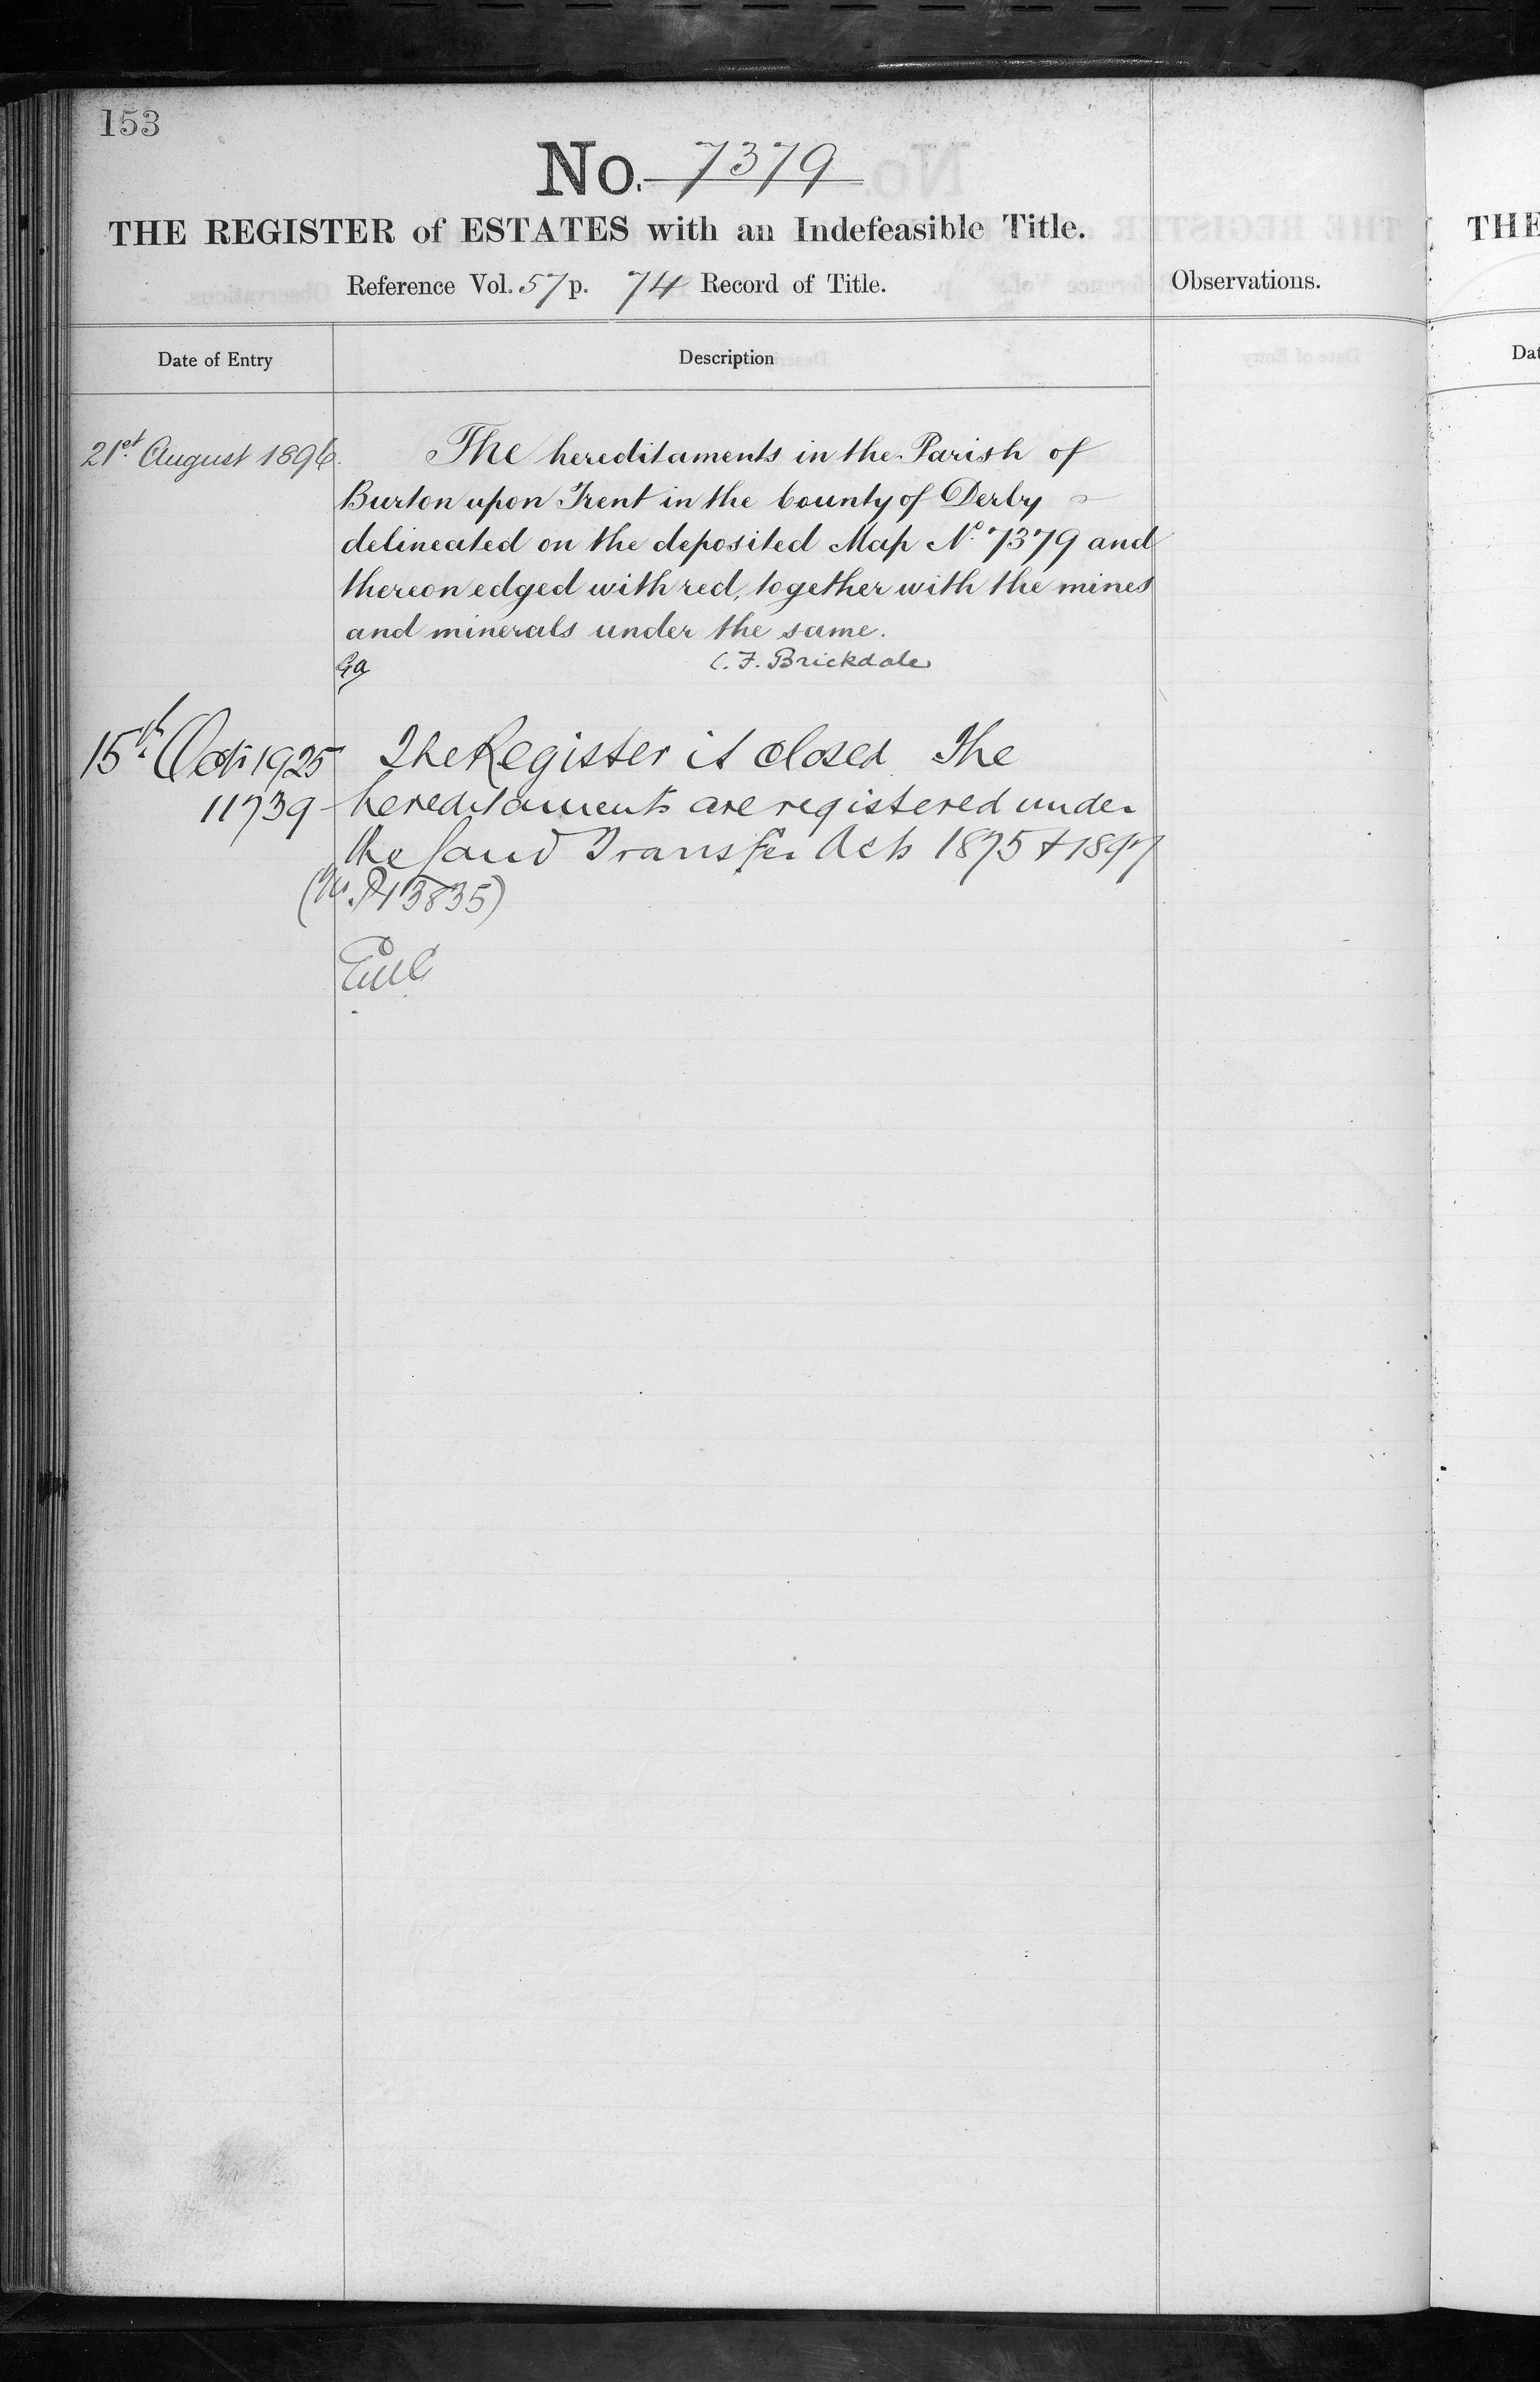 153
No. 7379
THE REGISTER of ESTATES with an Indefeasible Title.
Reference Vol. 57 p. 74 Record of Title.
Observations.
Date of Entry
Description
21st August 1896.
The hereditaments in the Parish of
Burton upon Trent in the County of Derby
delineated on the deposited Map No. 7379 and
thereon edged with red, together with the mines
and minerals under the same.
Ga
C. F. Brickdale
15th Oct 1925
11739
The Register is closed The
hereditaments are registered under
the Land Transfer Acts 1875 & 1897
(No. P43835)
THE
Dat